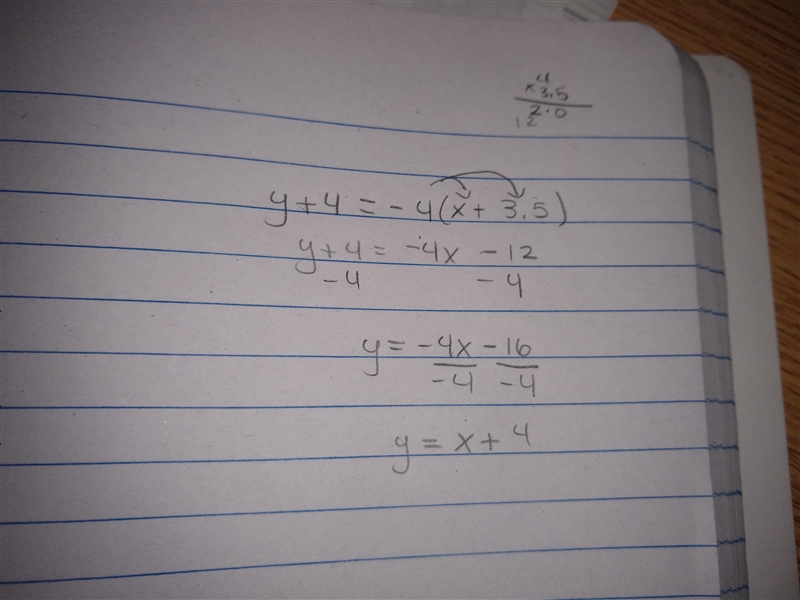 4
x 3.5
2.0
12
y + 4 = - 4(x + 3.5)
y + 4 = -4x - 12
- 4 - 4
y = -4x - 16
-4 -4
y = x + 4